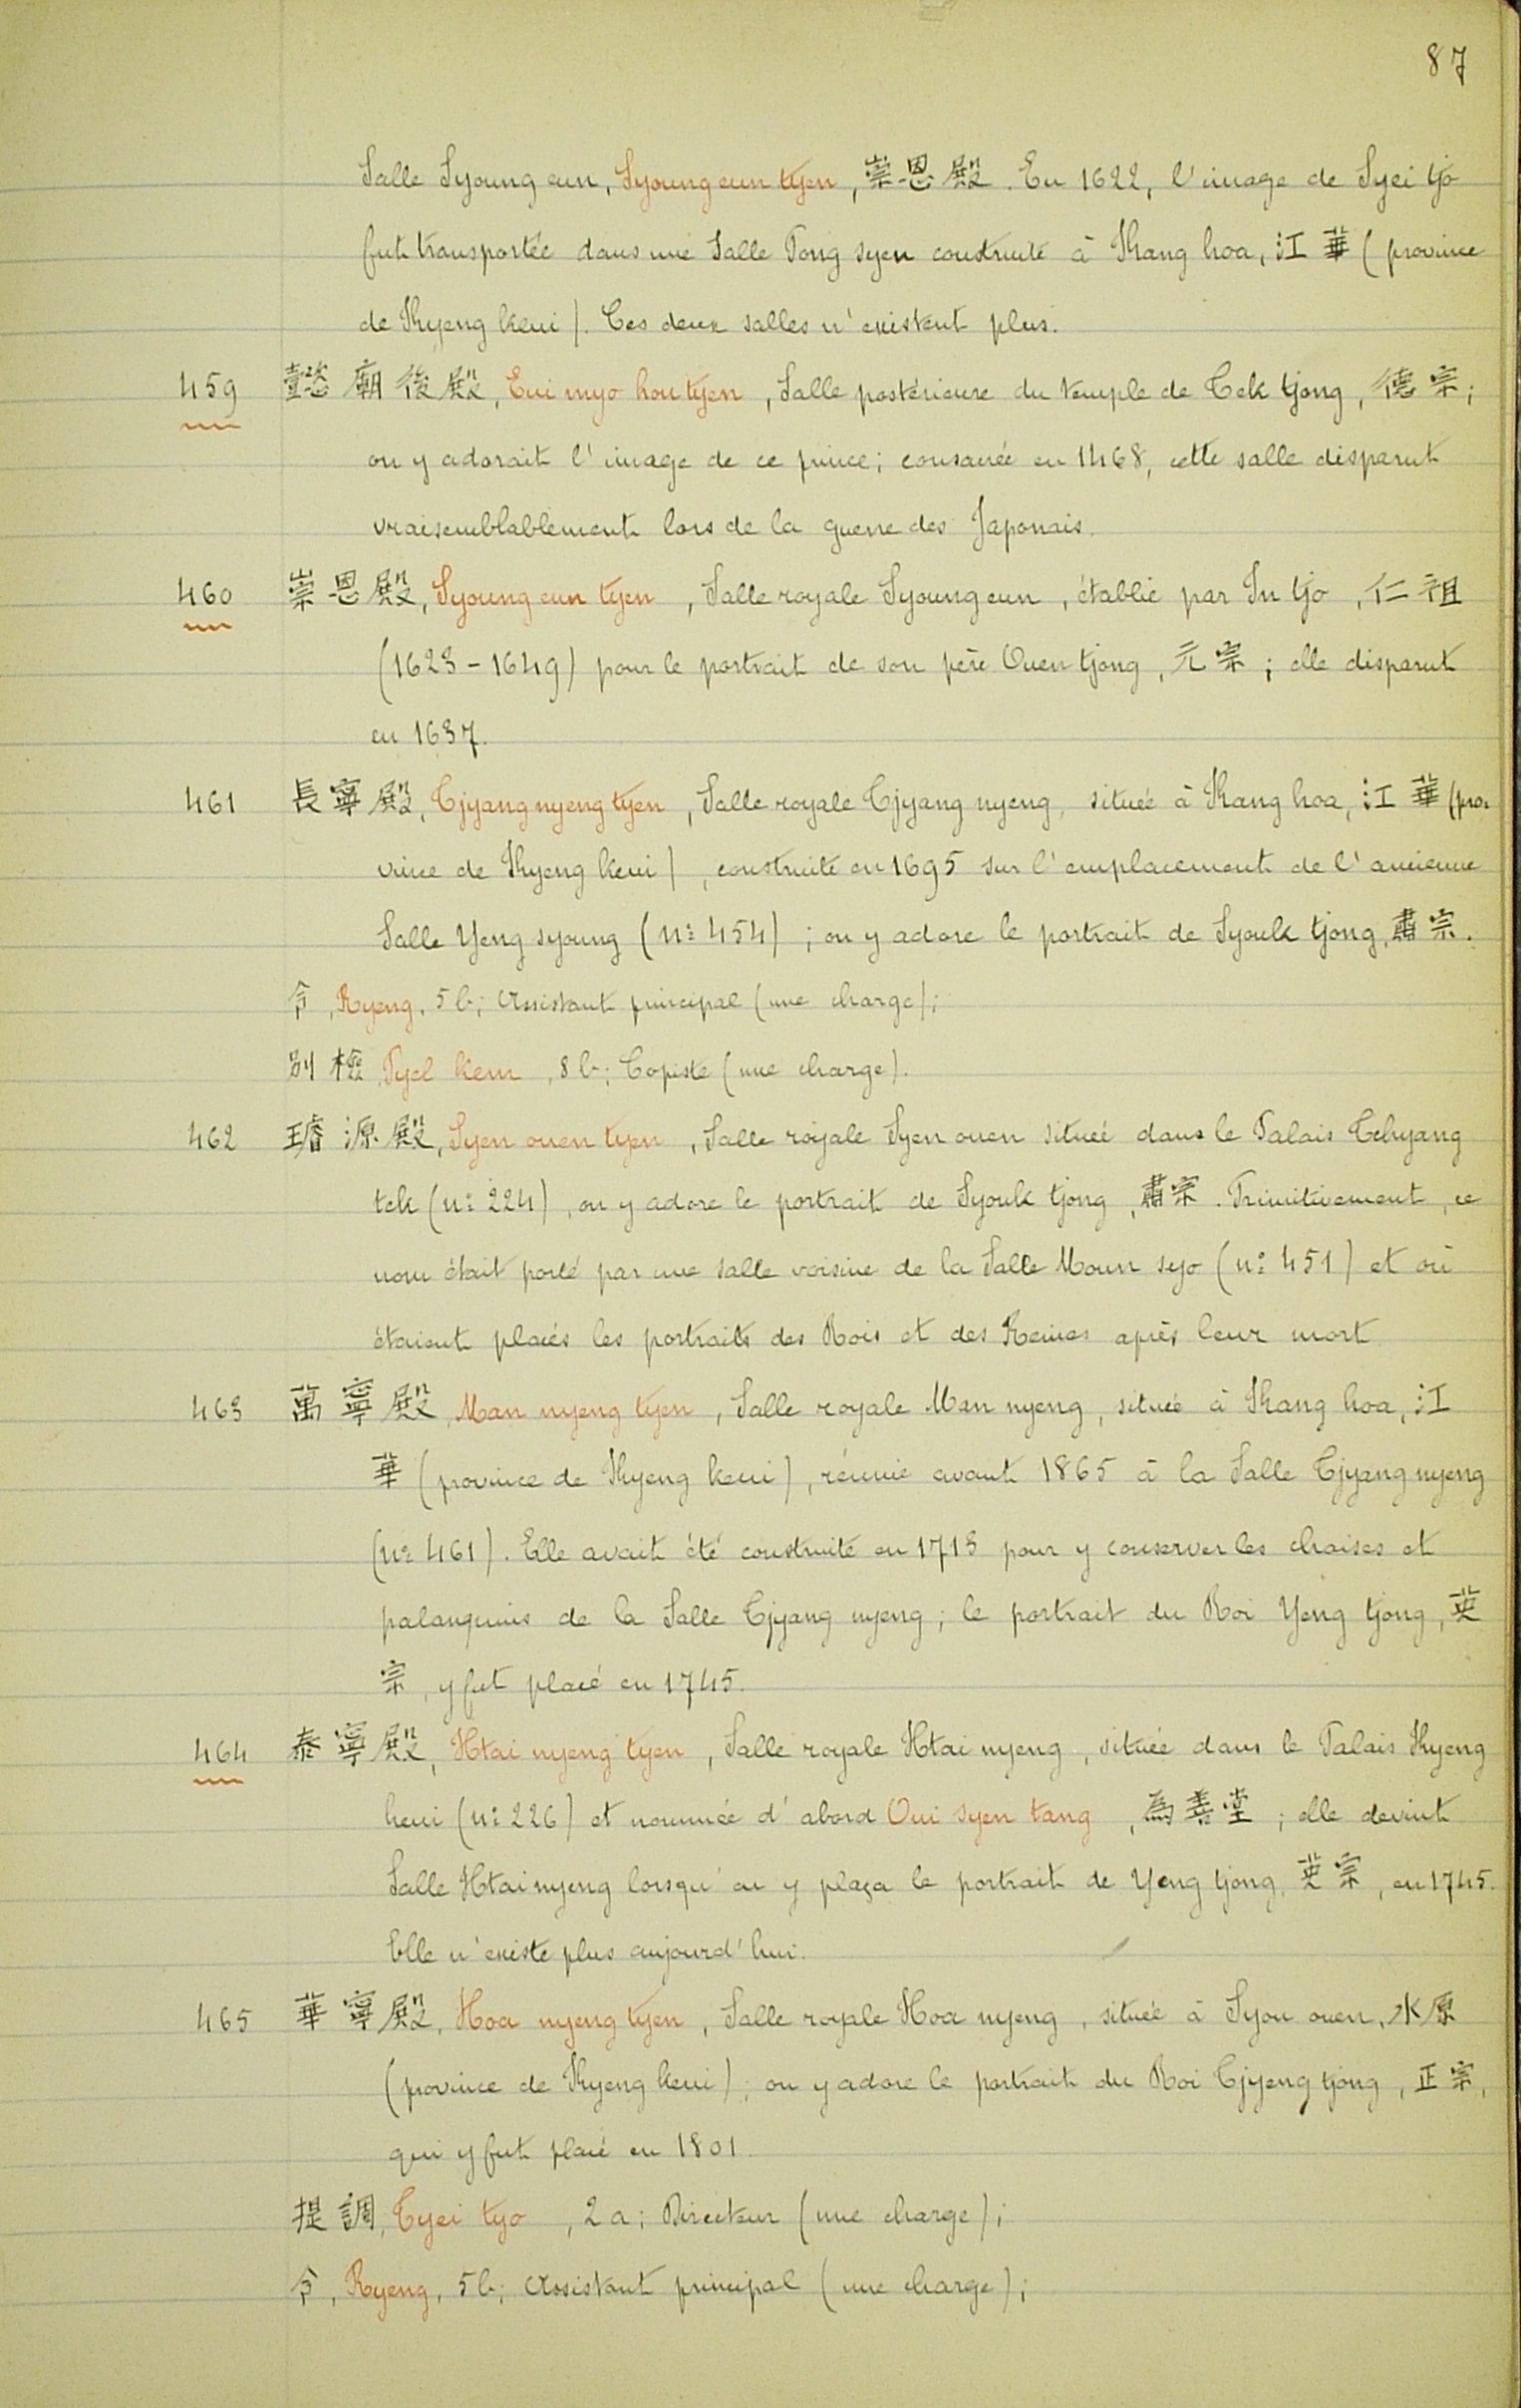 87
Salle Syoung eun, Syoung eun tyen, 崇恩殿. En 1622, l'image de Syei tjo
fut transportée dans une Salle Pong syen construite à Kang hoa, 江華 (province
de Kyeng keui). Ces deux salles n'existent plus.
459 懿廟後殿, Eui myo hou tyen, Salle postérieure du temple de Tek tjong, 德宗;
on y adorait l'image de ce prince; consacrée en 1468, cette salle disparut
vraisemblablement lors de la guerre des Japonais.
460 崇恩殿, Syoung eun tyen, Salle royale Syoung eun, établie par In tjo, 仁祖
(1623-1649) pour le portrait de son père Ouen tjong, 元宗; elle disparut
en 1637.
461 長寧殿, Tjyang nyeng tyen, Salle royale Tjyang nyeng, située à Kang hoa, 江華 (pro-
vince de Kyeng keui), construite en 1695 sur l'emplacement de l'ancienne
Salle Yeng syoung (nº 454); on y adore le portrait de Syouk tjong, 肅宗.
令, Ryeng, 5b; Assistant principal (une charge);
別檢, Pyel kem, 8b; Copiste (une charge).
462 璿源殿, Syen ouen tyen, Salle royale Syen ouen située dans le Palais Tchyang
tek (nº 224), on y adore le portrait de Syouk tjong, 肅宗. Primitivement, ce
nom était porté par une salle voisine de la Salle Moun syo (nº 451) et où
étaient placés les portraits des Rois et des Reines après leur mort
463 萬寧殿, Man nyeng tyen, Salle royale Man nyeng, située à Kang hoa, 江
華 (province de Kyeng keui), réunie avant 1865 à la Salle Tjyang nyeng
(nº 461). Elle avait été construite en 1713 pour y conserver les chaises et
palanquins de la Salle Tjyang nyeng; le portrait du Roi Yeng tjong, 英
宗, y fut placé en 1745.
464 泰寧殿, Htai nyeng tyen, Salle royale Htai nyeng, située dans le Palais Kyeng
heui (nº 226) et nommée d'abord Oui syen tang, 爲善堂; elle devint
Salle Htai nyeng lorsqu'on y plaça le portrait de Yeng tjong, 英宗, en 1745.
Elle n'existe plus aujourd'hui.
465 華寧殿, Hoa nyeng tyen, Salle royale Hoa nyeng, située à Syou ouen, 水原
(province de Kyeng keui), on y adore le portrait du Roi Tjyeng tjong, 正宗,
qui y fut placé en 1801.
提調, Tyei tyo, 2a; Directeur (une charge);
令, Ryeng, 5b; Assistant principal (une charge);